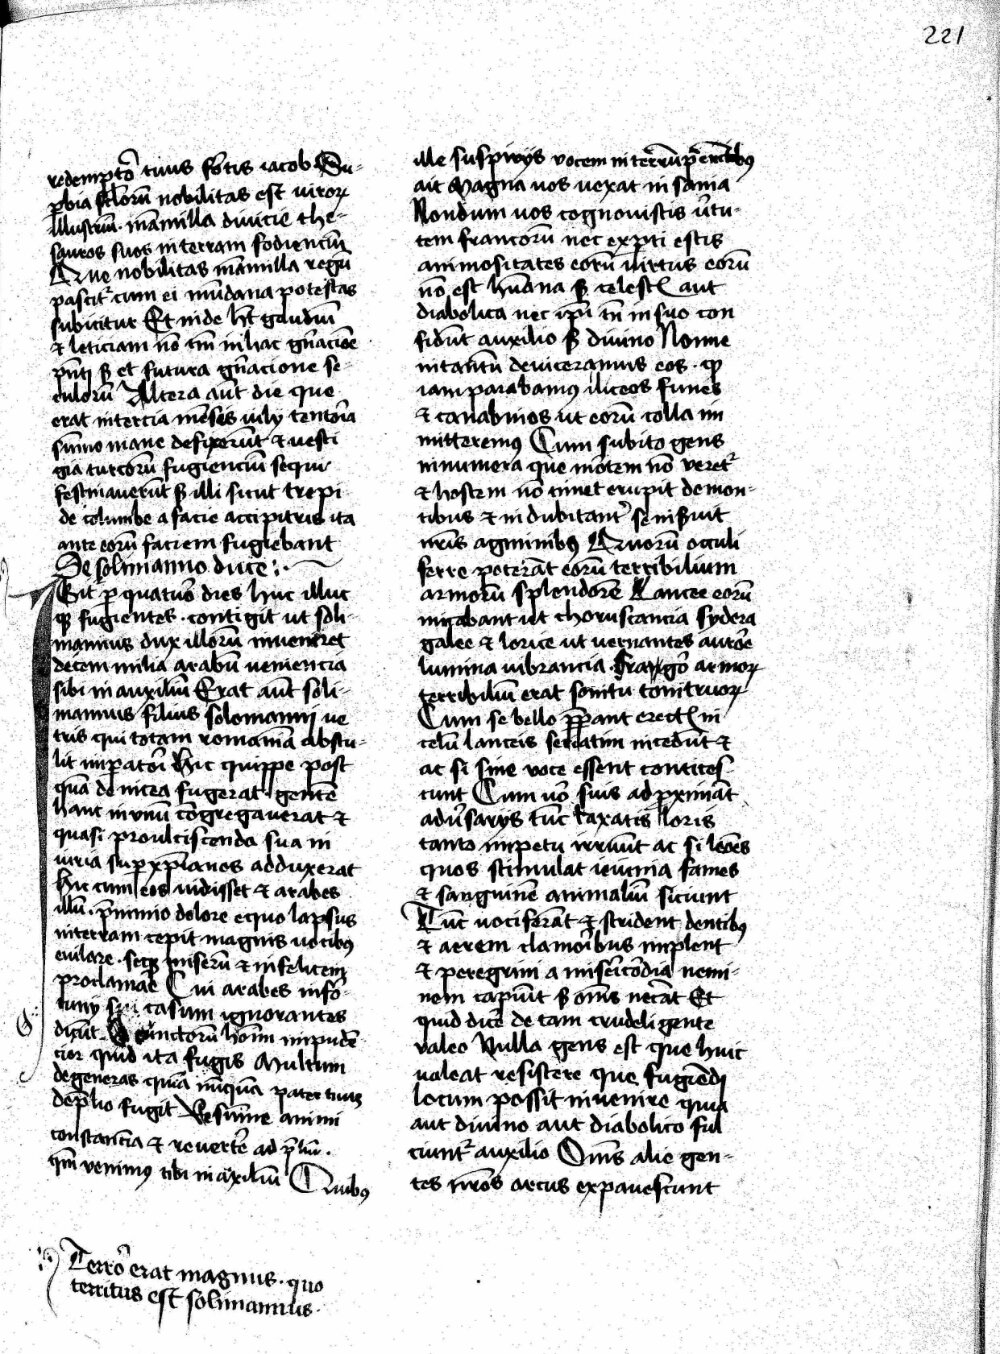 221
redemptōr tuus fortis iacob Su-
pbia sclorū nobilitas est viror
Illustriū. mamilla diuicie the-
sauros suos in terram fodienciū
Que nobilitas māmilla regū
pascit cum ei mūdana potestas
subicitur Et inde ht gaudiū
& leticiam nō tm in hac gnacione
pnti s et futura gnacione se-
culorū Altera aūt die que
erat in tercia mēses iulij tentoria
sūmo mane defixerūt & vesti
gia turcorū fugienciū sequi
festinauerūt s illi sicut trepi
de columbe a facie accipitris ita
ante eorū faciem fugiebant
De solimanno duce
Git p quatuor dies huc illuc
q fugientes. contigit ut soli-
mannus dux illorū inueniret
decem milia arabū veniencia
sibi in auxiliū Erat aūt soli-
mannus filius solomanni ve
tris qui totam romaniā abstu-
lit impatori Hic quippe post
quā de nicea fugerat. gentē
hanc in vnū congregauerat &
quasi pro ulciscenda sua in
iuria sup xpianos adduxerat
Hic cum eos uidisset & arabes
illū. p nimio dolore equo lapsus
in terram cepit magnis uocibus
eiulare. seq miserū & infelicem
proclamare Cui arabes infor
tunij sui casum ignorantes
dicūt. O cunctorū hoim impudē
cior quid ita fugis Multum
degeneras quia nūquā pater tuus
de plio fugit Resume animi
constancia & reuerte ad pliū.
qm venimus tibi in auxiliū Quibus
Terror erat magnus. quo
territus est solimannus.
ille suspirijs vocem interrūpentibus
ait Magna uos uexat insania
Nondum uos cognouistis v̄tu-
tem francorū nec expti estis
animositates eorū uirtus eorū
nō est humana s celestis aut
diabolica nec ipi tm in suo con
fidūt auxilio s diuino Nonne
in tantū deuiceramus eos. q
iam parabamus iliceos funes
& canabinos ut eorū colla im
mitteremus Cum subito gens
innumera que mortem nō veret
& hostem nō timet erupit de mon-
tibus & indubitanter se insuit
nris agminibus Quorū occuli
ferre poterāt eorū terribilium
armorū splendorē Lancee eorū
micabant ut choruscancia sydera
galee & lorice ut uernantes aurore
lumina uibrancia. Fragor armor
terribiliū erat sonitu tonitruor
Cum se bello ppant erectis in
celū lanceis seriatim incedūt &
ac si sine voce essent contices
cunt Cum vero suis adpximāt
adusarijs tūc laxatis loris
tanto impetu irruūt ac si leōes
quos stimulat ieiunia fames
& sanguinē animaliū siciunt
Tūc uociferāt & strident dentibus
& aerem clamoribus implent
& peregrini a misericordia nemi-
nem capiūt s omīs necāt Et
quid dicere de tam crudeli gente
valeo Nulla gens est que huic
valeat resistere que fugiendi
locum possit inuenire quia
aut diuino aut diabolico ful
ciunt auxilio Omīs alie gen-
tes nros arcus expauescunt